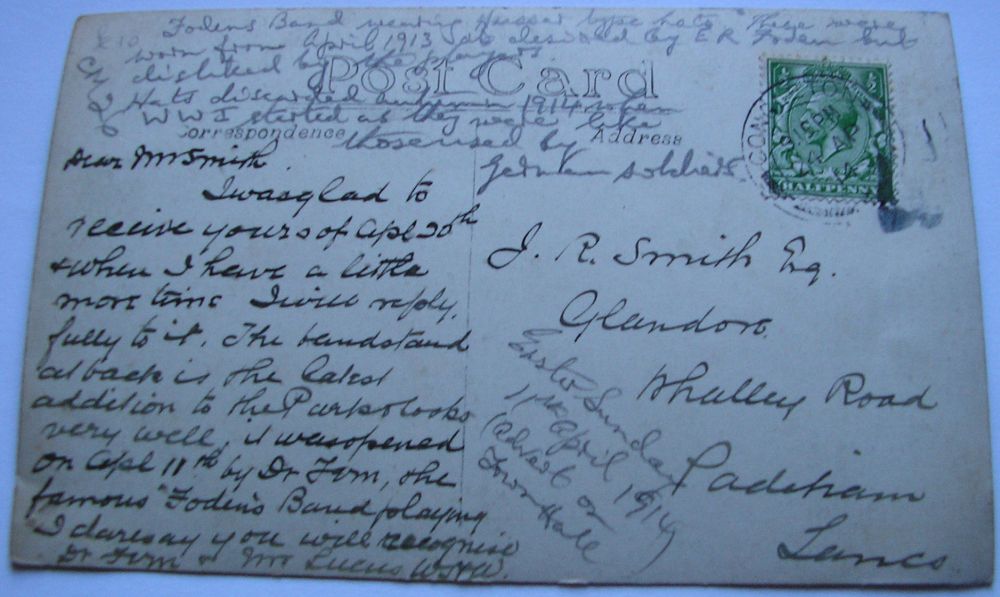 £10 Fodens Band wearing Hussar type hats. These were
worn from April 1913 (as desired by E R Foden but
disliked by the players
Post Card
Hats discarded autumn 1914 when
WWI started as they were like
those used by
German soldiers.
Correspondence
Address
HALFPENNY
Dear Mr Smith
I was glad to
receive yours of Apl 20th
& when I have a little
more time I will reply,
fully to it. The bandstand
at back is the latest
addition to the Park & looks
very well, it was opened
on Apl 11th by Dr Fern, the
famous "Fodens Band playing
I daresay you will recognise
Dr Fern & Mr Lucas
J. R. Smith Esq.
Glandore
Whalley Road
Padiham
Lancs
Easter Sunday
11th April 1914
(advert on
Town Hall